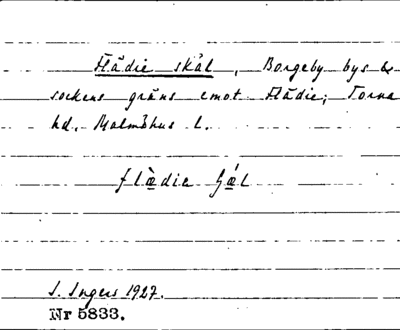 Flädie skäl, Borgeby bys &
sockens gräns emot Flädie; Torna
hd. Malmöhus l.
flædie
I. Ingers 1927.
Nr 5833.